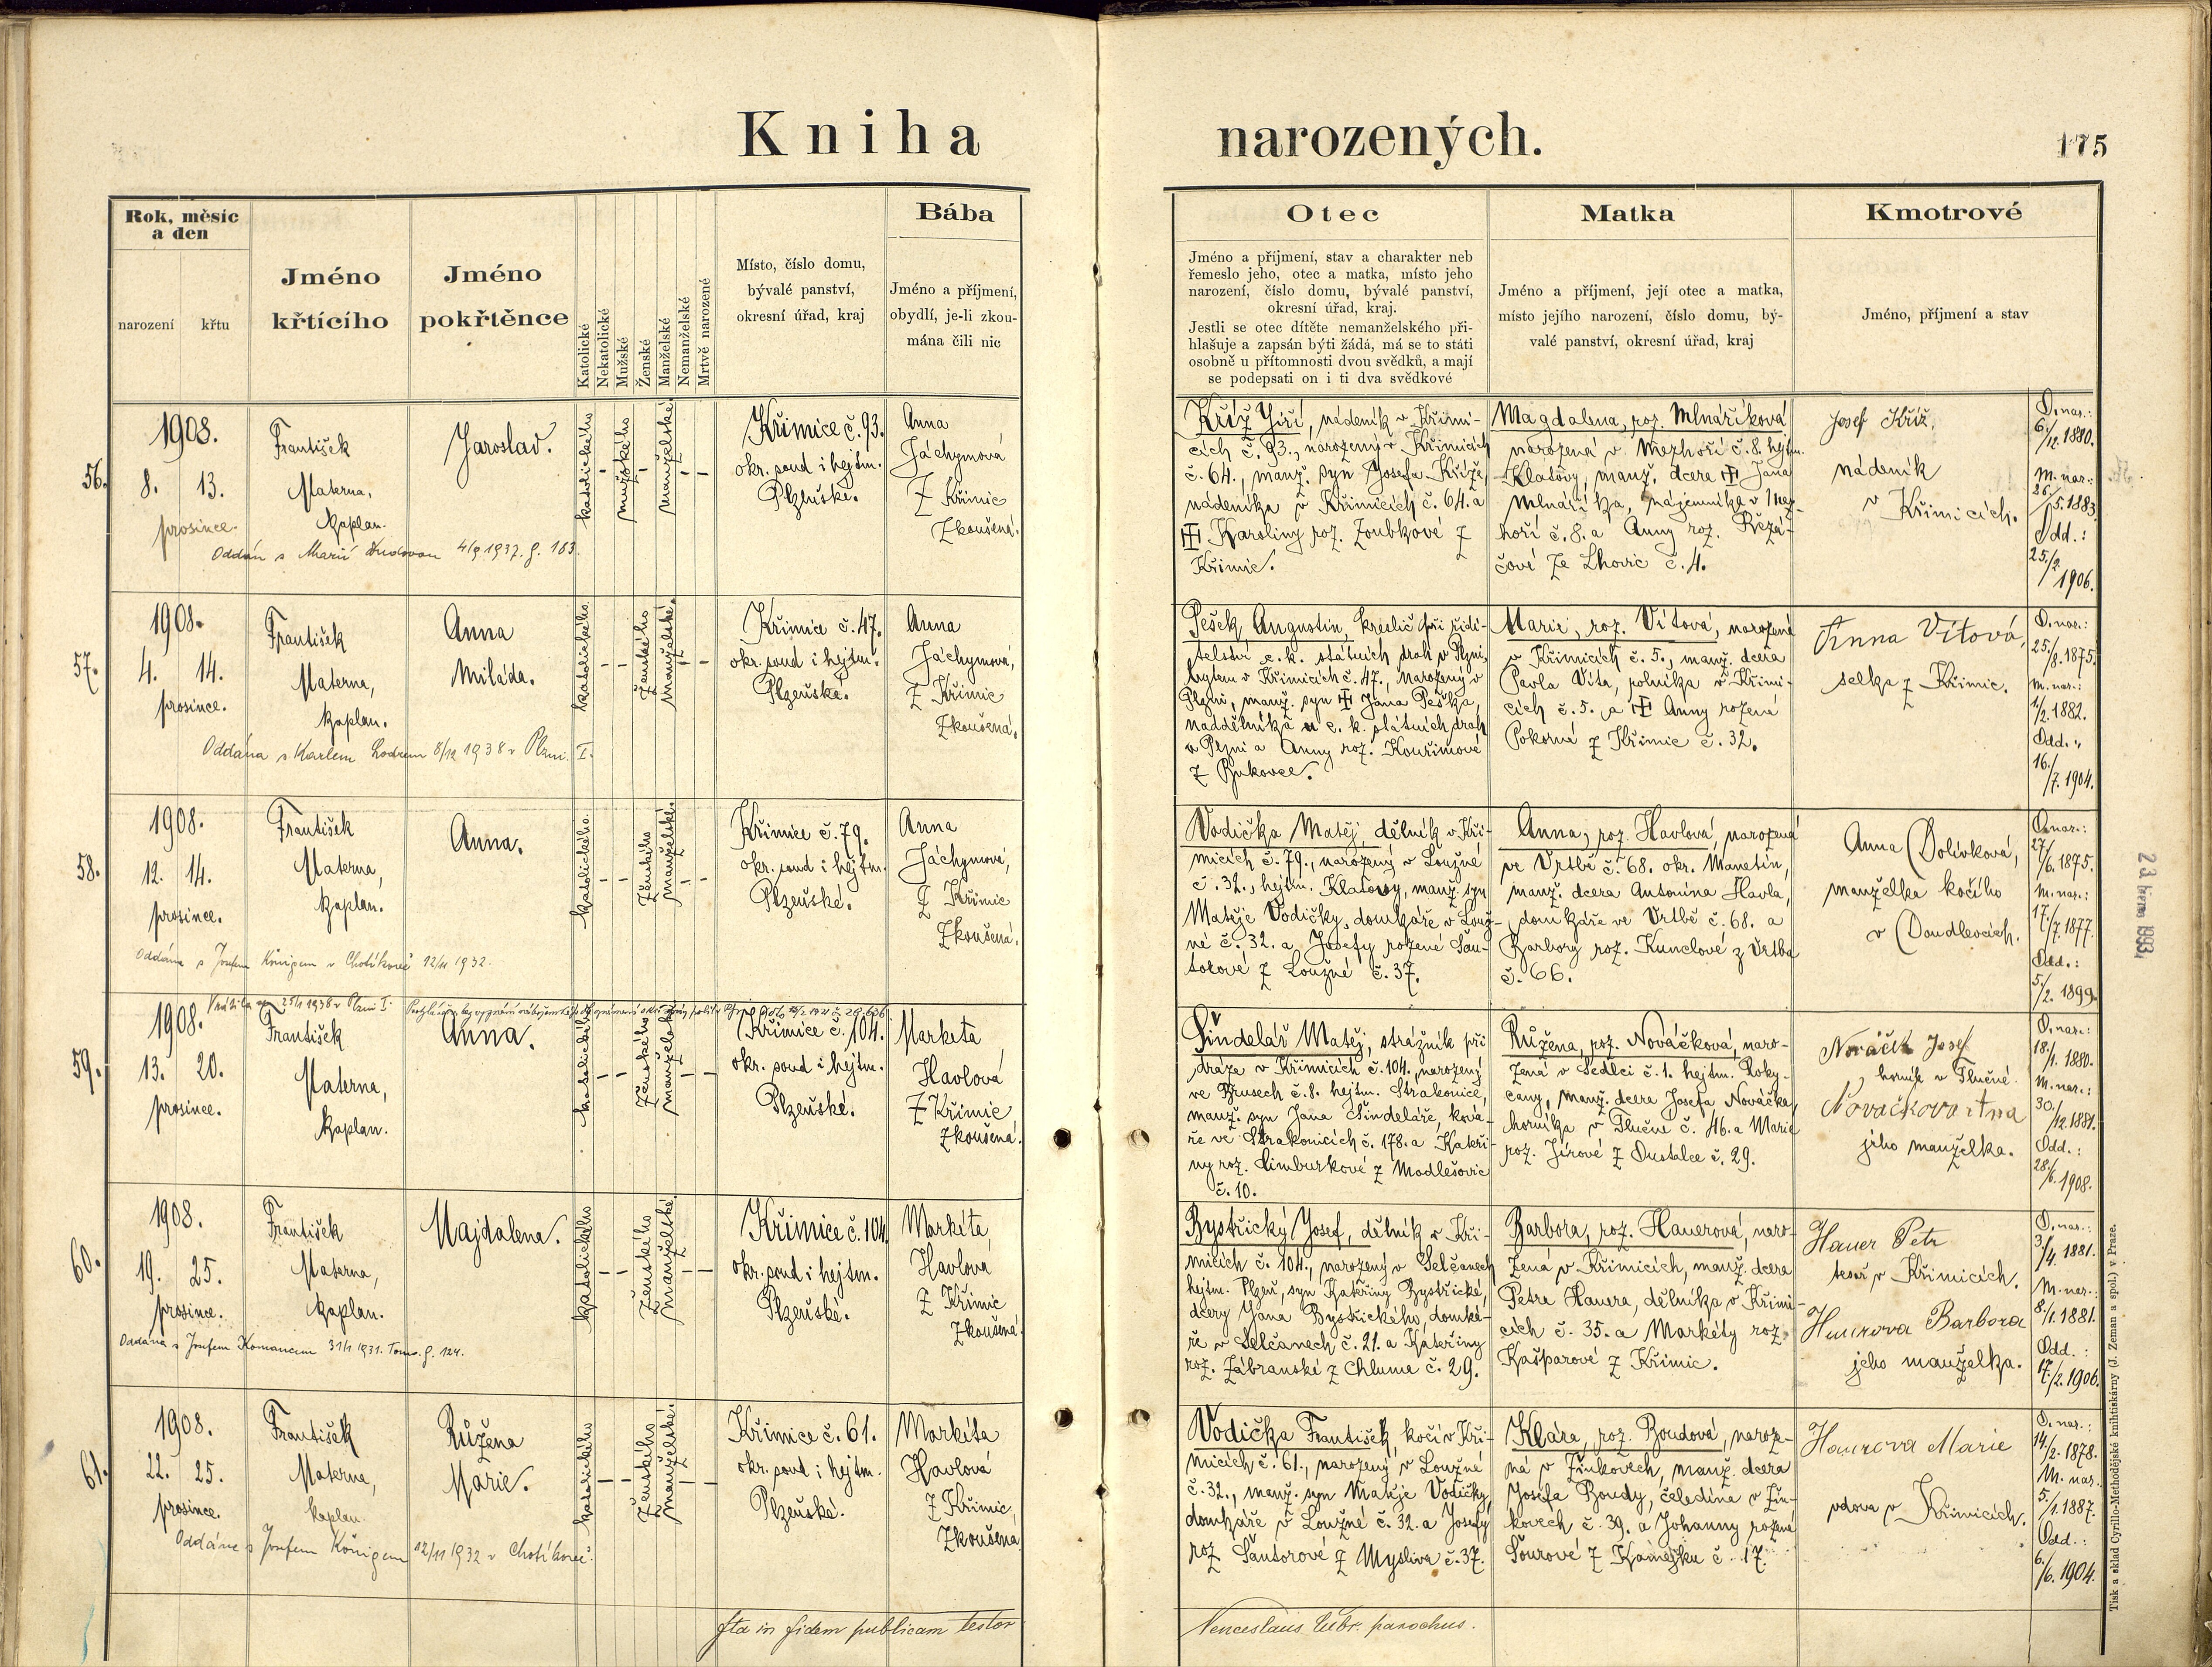 Kniha narozených.
175
Rok, měsíc
a den
narození
křtu
Jméno
křtícího
Jméno
pokřtěnce
Katolické
Nekatolické
Mužské
Ženské
Manželské
Nemanželské
Mrtvě narozené
Místo, číslo domu,
bývalé panství,
okresní úřad, kraj
Bába
Jméno a příjmení,
obydlí, je-li zkou-
mána čili nic
Otec
Jméno a příjmení, stav a charakter neb
řemeslo jeho, otec a matka, místo jeho
narození, číslo domu, bývalé panství,
okresní úřad, kraj.
Jestli se otec dítěte nemanželského při-
hlašuje a zapsán býti žádá, má se to státi
osobně u přítomnosti dvou svědků, a mají
se podepsati on i ti dva svědkové
Matka
Jméno a příjmení, její otec a matka,
místo jejího narození, číslo domu, bý-
valé panství, okresní úřad, kraj
Kmotrové
Jméno, příjmení a stav
56.
1908.
8. 13.
prosince.
František
Materna,
kaplan.
Jaroslav.
katolického
mužského
manželské.
Křimice č. 93.
okr. soud i hejtm.
Plzeňské.
Anna
Jáchymová
z Křimic
Zkoušená.
Oddán s Marií 4/9 1937. f. 183.
Kříž Jiří, nádeník v Křimi-
cích č. 93., narozený v Křimicích
č. 64., manž. syn Josefa Kříže,
nádeníka v Křimicích č. 64. a
Karoliny roz. Zoubkové z
Křimic.
Magdalena, roz. Mlnaříková
narozená v Mezhoří č. 8. hejtm.
Klatovy, manž. dcera Jana
Mlnáříka, nájemníka v Mez-
hoří č. 8. a Anny roz. Řezá-
čové ze Lhovic č. 4.
Josef Kříž,
nádeník
v Křimicích.
O. nar.:
6./12. 1880.
M. nar.:
26./5. 1883.
Odd.:
25./2.
1906.
57.
1908.
4. 14.
prosince.
František
Materna,
kaplan.
Anna
Miláda.
katolického
ženského
manželské.
Křimice č. 47.
okr. soud i hejtm.
Plzeňské.
Anna
Jáchymová,
z Křimic
Zkoušená.
Oddána s Karlem 8/12 1938 v Plzni I.
Pešek Augustin, kreslič při ředi-
telství c. k. státních drah v Plzni,
bytem v Křimicích č. 47., narozený v
Plzni, manž. syn Jana Peška,
naddělníka u c. k. státních drah
v Plzni a Anny roz. Kouřimové
z Bukovce.
Marie, roz. Vítová, narozená
v Křimicích č. 5., manž. dcera
Pavla Víta, rolníka v Křimi-
cích č. 5. a Anny rozená
Pokorné z Křimic č. 32.
Anna Vítová,
selka z Křimic.
O. nar.:
25./8. 1875.
M. nar.:
1./2. 1882.
Odd.:
16./7. 1904.
58.
1908.
12. 14.
prosince.
František
Materna,
kaplan.
Anna.
katolického
ženského
manželské.
Křimice č. 79.
okr. soud i hejtm.
Plzeňské.
Anna
Jáchymová,
z Křimic
Zkoušená.
Oddána s Josefem Königem v Chotíkově 12/11 1932.
Vodička Matěj, dělník v Kři-
micích č. 79., narozený v Loužné
č. 32., hejtm. Klatovy, manž. syn
Matěje Vodičky, domkáře v Louž-
né č. 32. a Josefy rozené Šan-
torové z Loužné č. 37.
Anna, roz. Havlová, narozená
ve Vrtbě č. 68. okr. Manetín,
manž. dcera Antonína Havla,
domkáře ve Vrtbě č. 68. a
Barbory roz. Kunclové z Vrtba
č. 66.
Anna Dolívková,
manželka kočího
v Doudlevcích.
O. nar.:
27./6. 1875.
M. nar.:
17./7. 1877.
Odd.:
5./2. 1899.
59.
1908.
13. 20.
prosince.
František
Materna,
kaplan.
Anna.
katolického
ženského
manželské
Křimice č. 104.
okr. soud i hejtm.
Plzeňské.
Markéta
Havlová
z Křimic
zkoušená.
Šindelář Matěj, strážník při
dráze v Křimicích č. 104., narozený
ve Brusech č. 8. hejtm. Strakonice,
manž. syn Jana Šindeláře, ková-
ře ve Strakonicích č. 178. a Kateři-
ny roz. Limburkové z Modlešovic
č. 10.
Růžena, roz. Nováčková, naro-
zená v Sedlci č. 1. hejtm. Roky-
cany, manž. dcera Josefa Nováčka,
horníka v Tlučné č. 46. a Marie
roz. Jírové z Oustalce č. 29.
Nováček Josef
horník v Tlučné.
Nováčková Anna
jeho manželka.
O. nar.:
18./1. 1880.
M. nar.:
30./12. 1881.
Odd.:
28./6. 1908.
60.
1908.
19. 25.
prosince.
František
Materna,
kaplan.
Majdalena.
katolického
ženského
manželské.
Křimice č. 104.
okr. soud i hejtm.
Plzeňské.
Markéta
Havlová
z Křimic
Zkoušená.
Oddána s Josefem 31/1 1931. Tom. f. 124.
Bystřický Josef, dělník v Kři-
micích č. 104., narozený v Úelčanech
hejtm. Plzeň, syn Kateřiny Bystřické,
dcery Jana Bystřického, domká-
ře v Úelčanech č. 21. a Kateřiny
roz. Zábranské z Chlumu č. 29.
Barbora, roz. Hauerová, naro-
zená v Křimicích, manž. dcera
Petra Hauera, dělníka v Křimi-
cích č. 35. a Markéty roz.
Kašparové z Křimic.
Hauer Petr
tesař v Křimicích.
Hauerova Barbora
jeho manželka.
O. nar.:
3./4. 1881.
M. nar.:
8./1. 1881.
Odd.:
17./2. 1906.
61.
1908.
22. 25.
prosince.
František
Materna,
kaplan.
Růžena
Marie.
katolického
ženského
manželské.
Křimice č. 61.
okr. soud i hejtm.
Plzeňské.
Markéta
Havlová
z Křimic,
Zkoušena
Oddána s Josefem Königem 12/11 1932 v Chotíkově.
Vodička František, kočí v Kři-
micích č. 61., narozený v Loužné
č. 32., manž. syn Matěje Vodičky,
domkáře v Loužné č. 32. a Josefy
roz. Šantorové z Myslíva č. 37.
Klára, roz. Boudová, naroze-
ná v Žinkovech, manž. dcera
Josefa Boudy, čeledína v Žin-
kovech č. 39. a Johanny rozená
Šourové z Kamejku č. 17.
Hauerova Marie
vdova v Křimicích.
O. nar.:
14./2. 1878.
M. nar.
5./1. 1887.
Odd.:
6./6. 1904.
Ita in fidem publicam testor
Venceslaus parochus.
Tisk a sklad Cyrillo-Methodějské knihtiskárny (J. Zeman a spol.) v Praze.